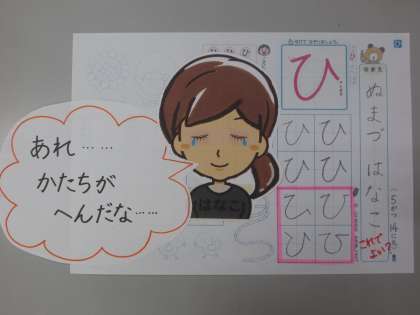 あれ……
かたちが
へんだな……
はなこ
ひ
ひひ
ひひ
ひひ
ひひ
ぬまづ はなこ
これで
よい？